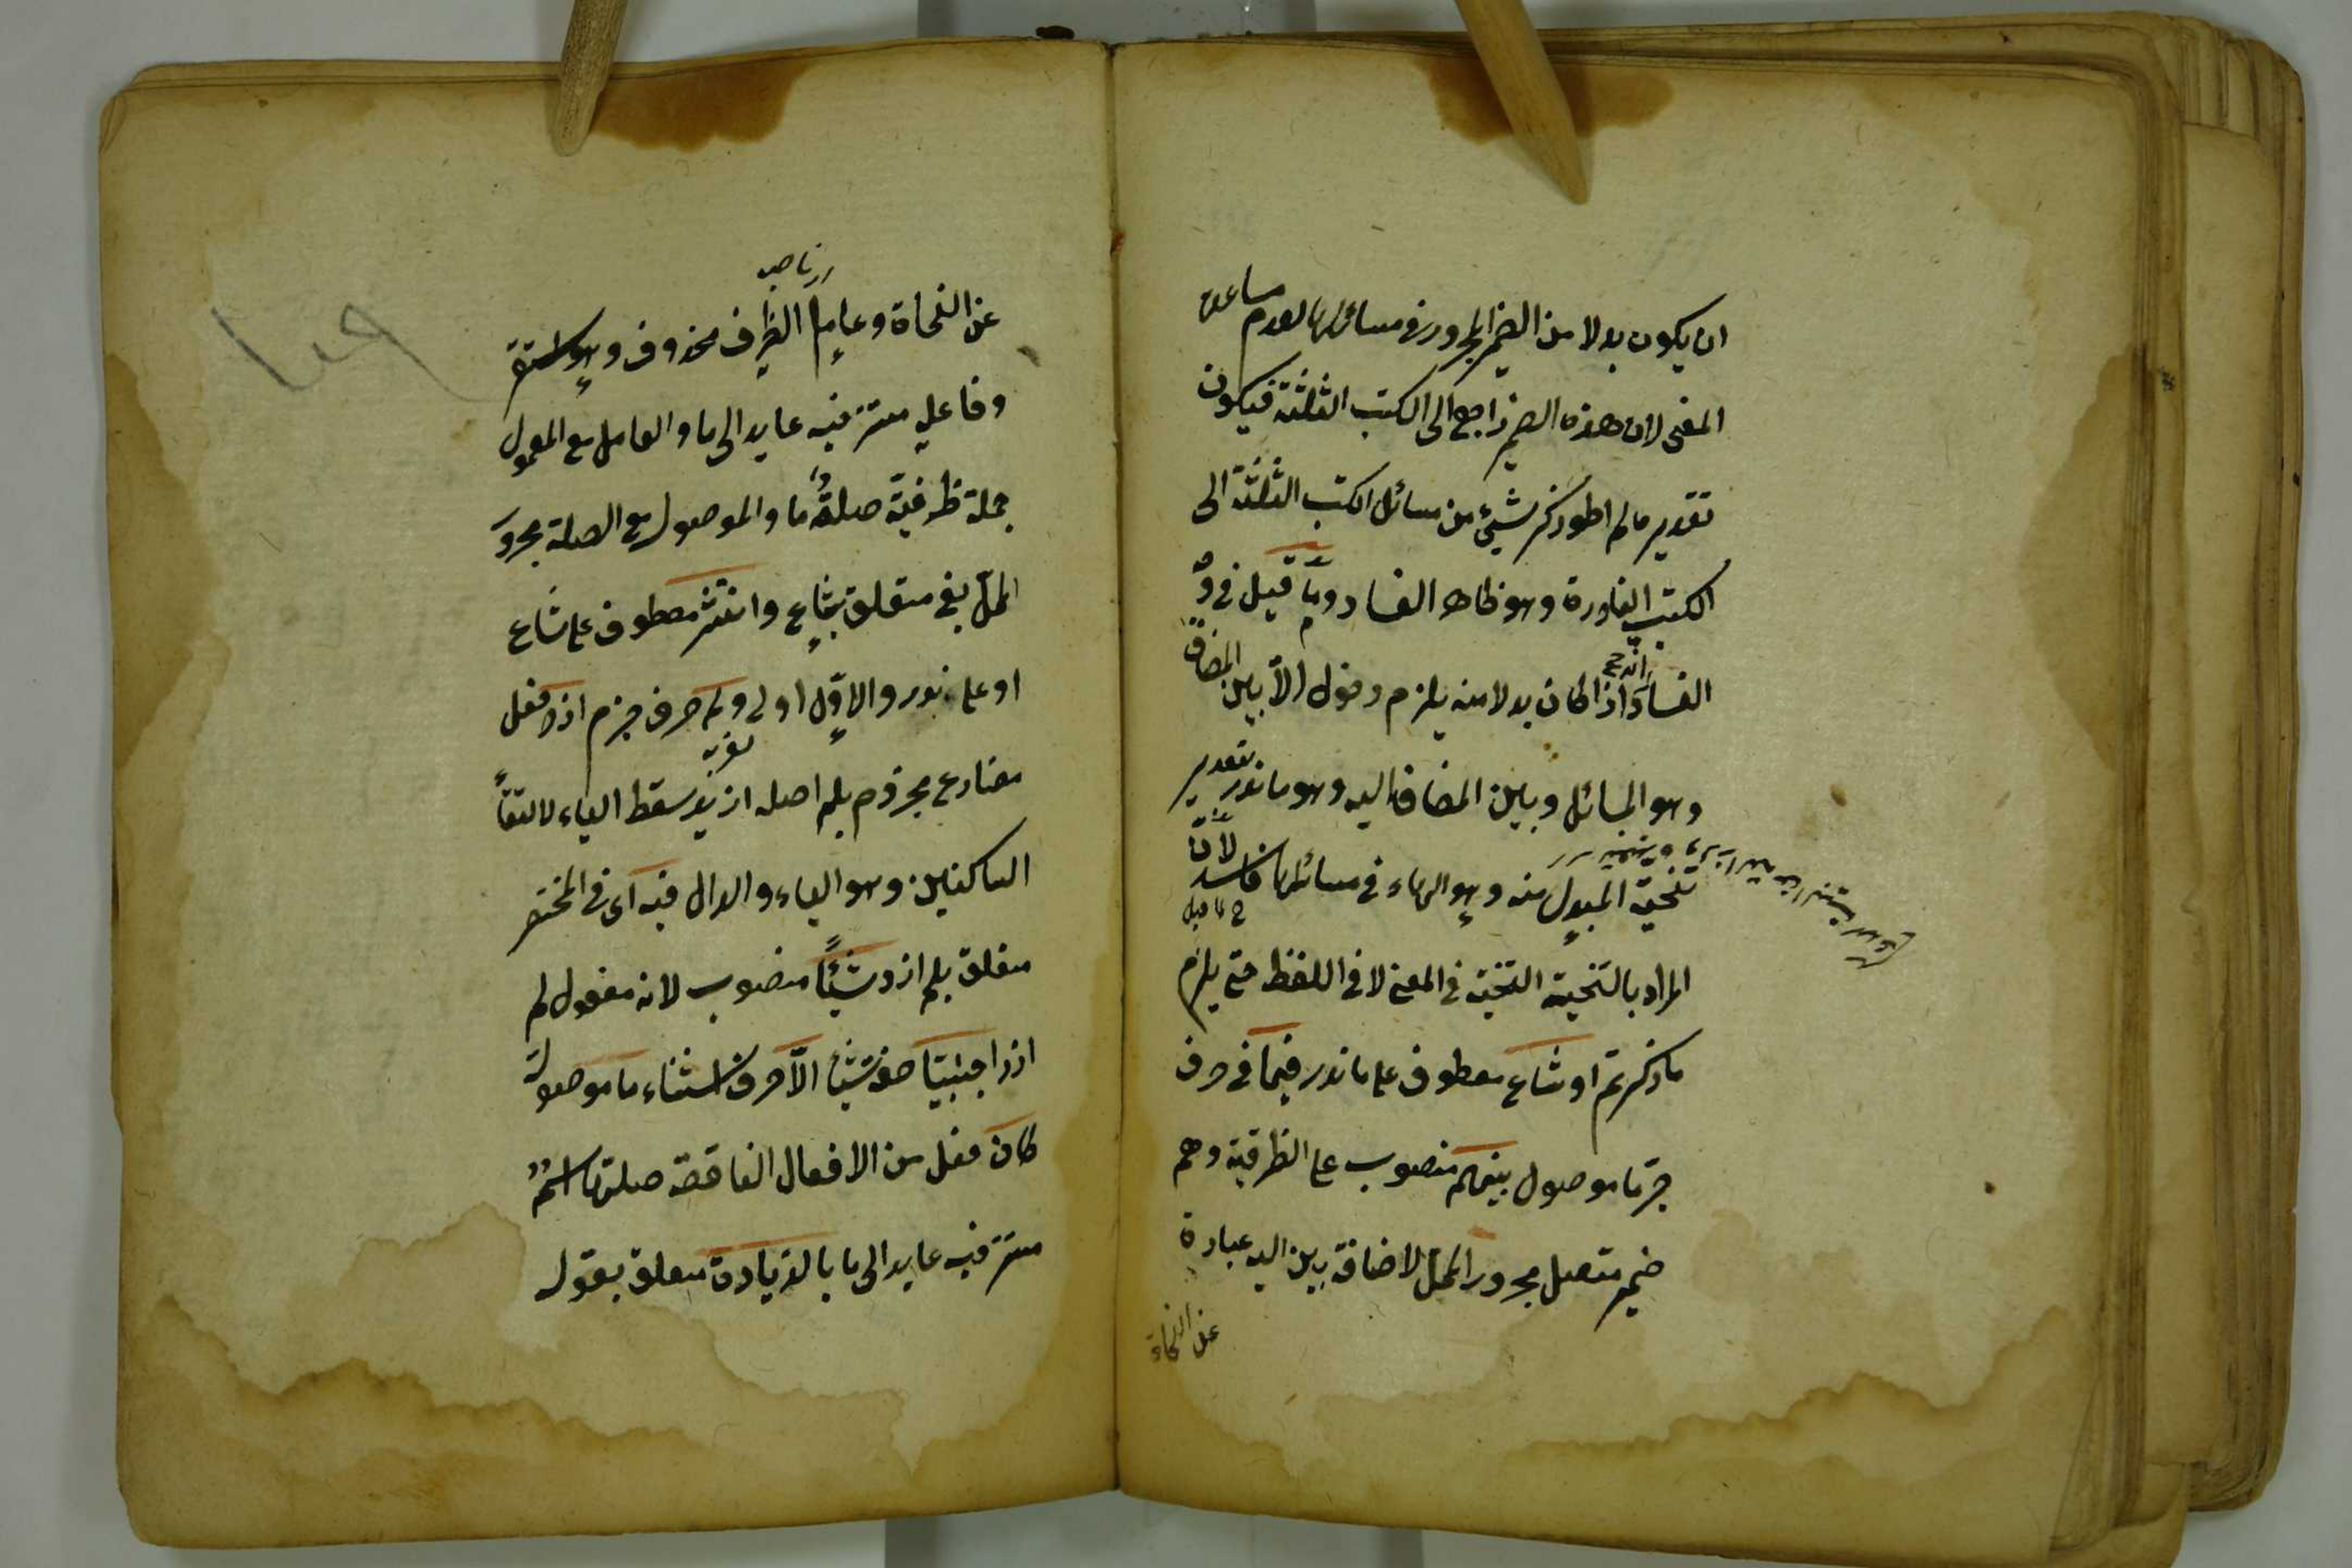 ان يكون بدلا من الضمير المجرور في مسائلها لعدم مساعدة
المعنى لان هذه الضمير راجع الى الكتب الثلثة فيكون
تقدير ما لم اطو ذكر شيئ من مسائل الكتب الثلثة الى
الكتب النادرة وهو ظاهر الفساد وما قيل في وجه
الفساد انه اذا كان بدلا منه يلزم دخول الا بين المضاف
وهو المسائل وبين المضاف اليه وهو ما ندر بتقدير
تنحية المبدل منه وهو الهاء في مسائلها فاسد لان
المراد بالتنحية التنحية في المعنى لا في اللفظ حتى يلزم
ما ذكرتم او شاع معطوف على ما ندر فيما في حرف
جر ما موصول بينهم منصوب على الظرفية وهم
ضمير متصل مجرور المحل لاضافة بين اليه عبارة
عن النحاة
عن النحاة وعامل الظرف محذوف وهو استقر
وفاعله مستتر فيه عايد الى ما والعامل مع المعمول
جملة ظرفية صلة ما والموصول مع الصلة مجرور
المحل بفي متعلق بشاع وانتشر معطوف على شاع
او على ندر والاول اولى ولم حرف جزم ازد فعل
مضارع مجزوم بلم اصله ازيد سقط الياء لالتقاء
الساكنين وهو الياء والدال فيه اى في المختصر
متعلق بلم ازد شيئا منصوب لانه مفعول لم
ازد اجنبيا صفة شيئا الا حرف استثناء ما موصولة
كان فعل من الافعال الناقصة صلتها اسمه
مستتر فيه عايد الى ما بالزيادة متعلق بقوله